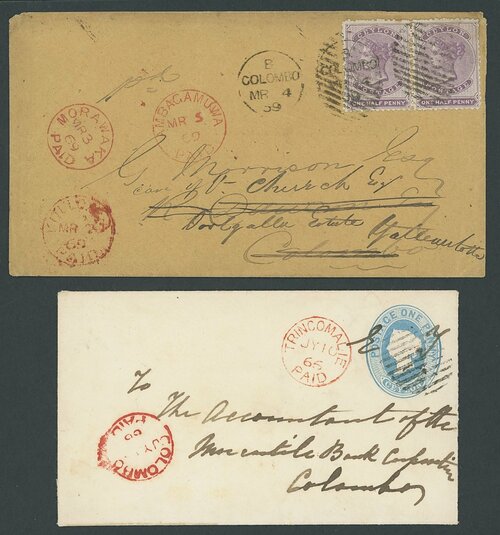 CEYLON
POSTAGE
ONE HALF PENNY
CEYLON
POSTAGE
ONE HALF PENNY
B
COLOMBO
MR 4
69
paid
MORAWAKA
MR 3
69
PAID
AMBAGAMUWA
MR 5
69
PAID
G. Morrison Esq
care of Church Esq
Doolgalla Estate
Colombo
MR 2
69
PAID
POSTAGE ONE PENNY
CEYLON
TRINCOMALIE
JY 10
66
PAID
To
The Accountant of the
Mercantile Bank Corporation
Colombo
COLOMBO
JY
66
PAID